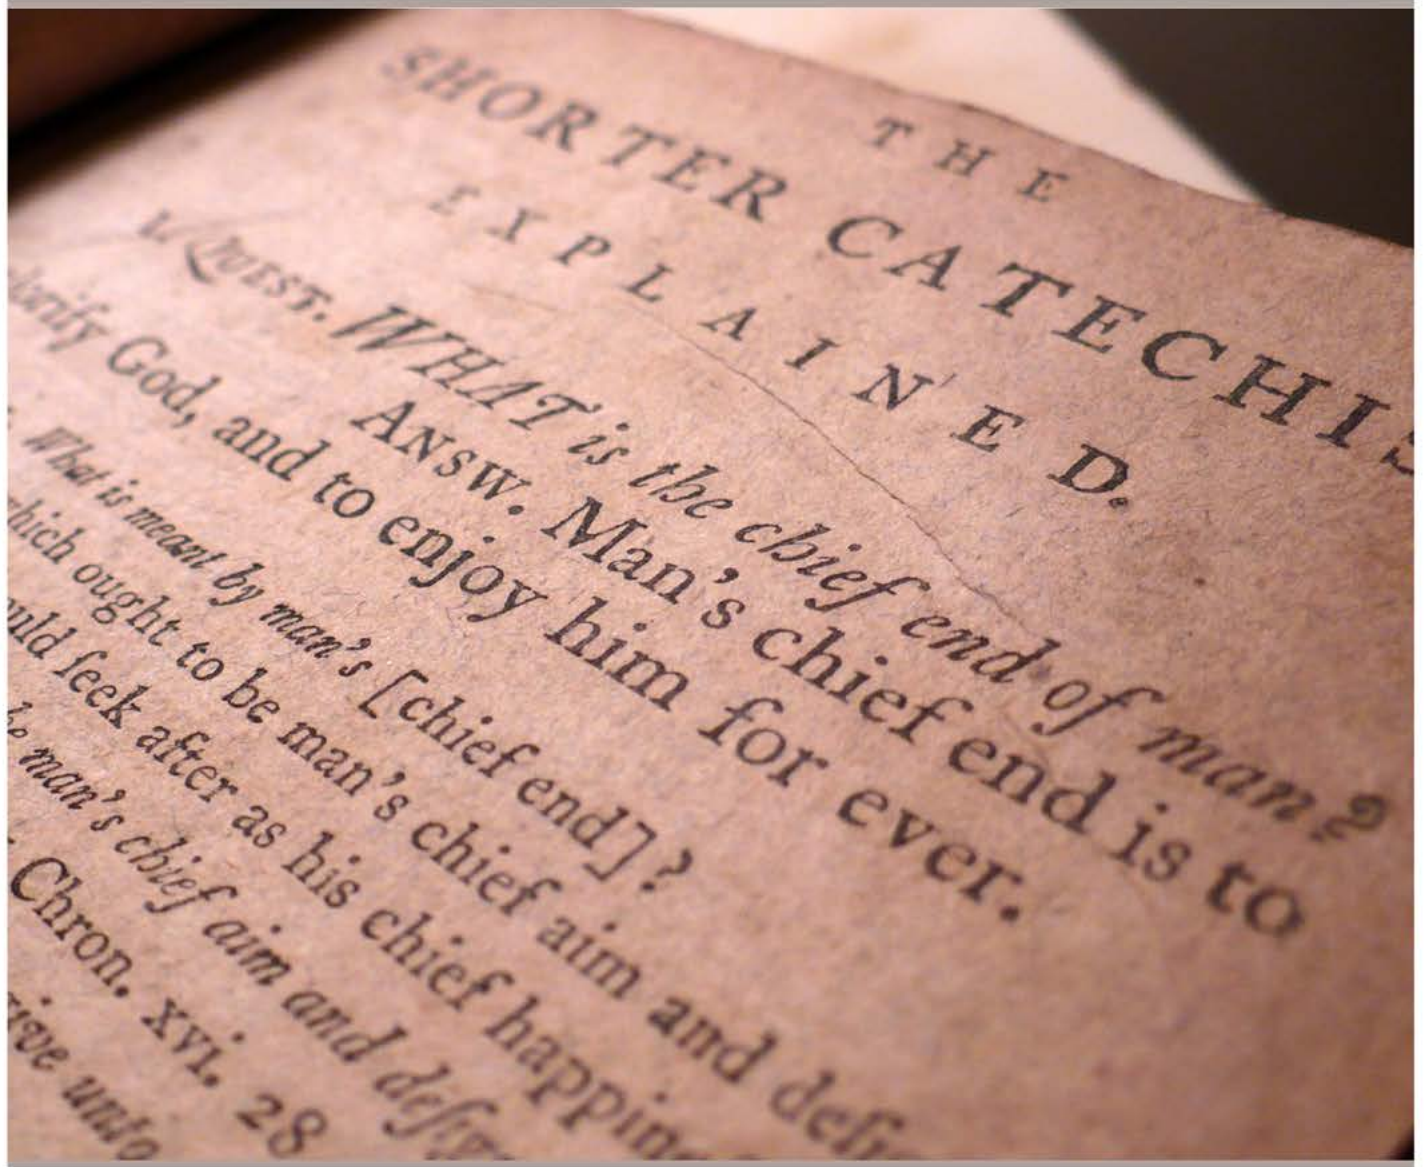 THE
SHORTER CATECHIS
EXPLAINED.
I. QUEST. WHAT is the chief end of man?
ANSW. Man's chief end is to
glorify God, and to enjoy him for ever.
What is meant by man's [chief end]?
which ought to be man's chief aim and deſi
ſeek after as his chief happin
man's chief aim and deſign
Chron. xvi. 28
unto